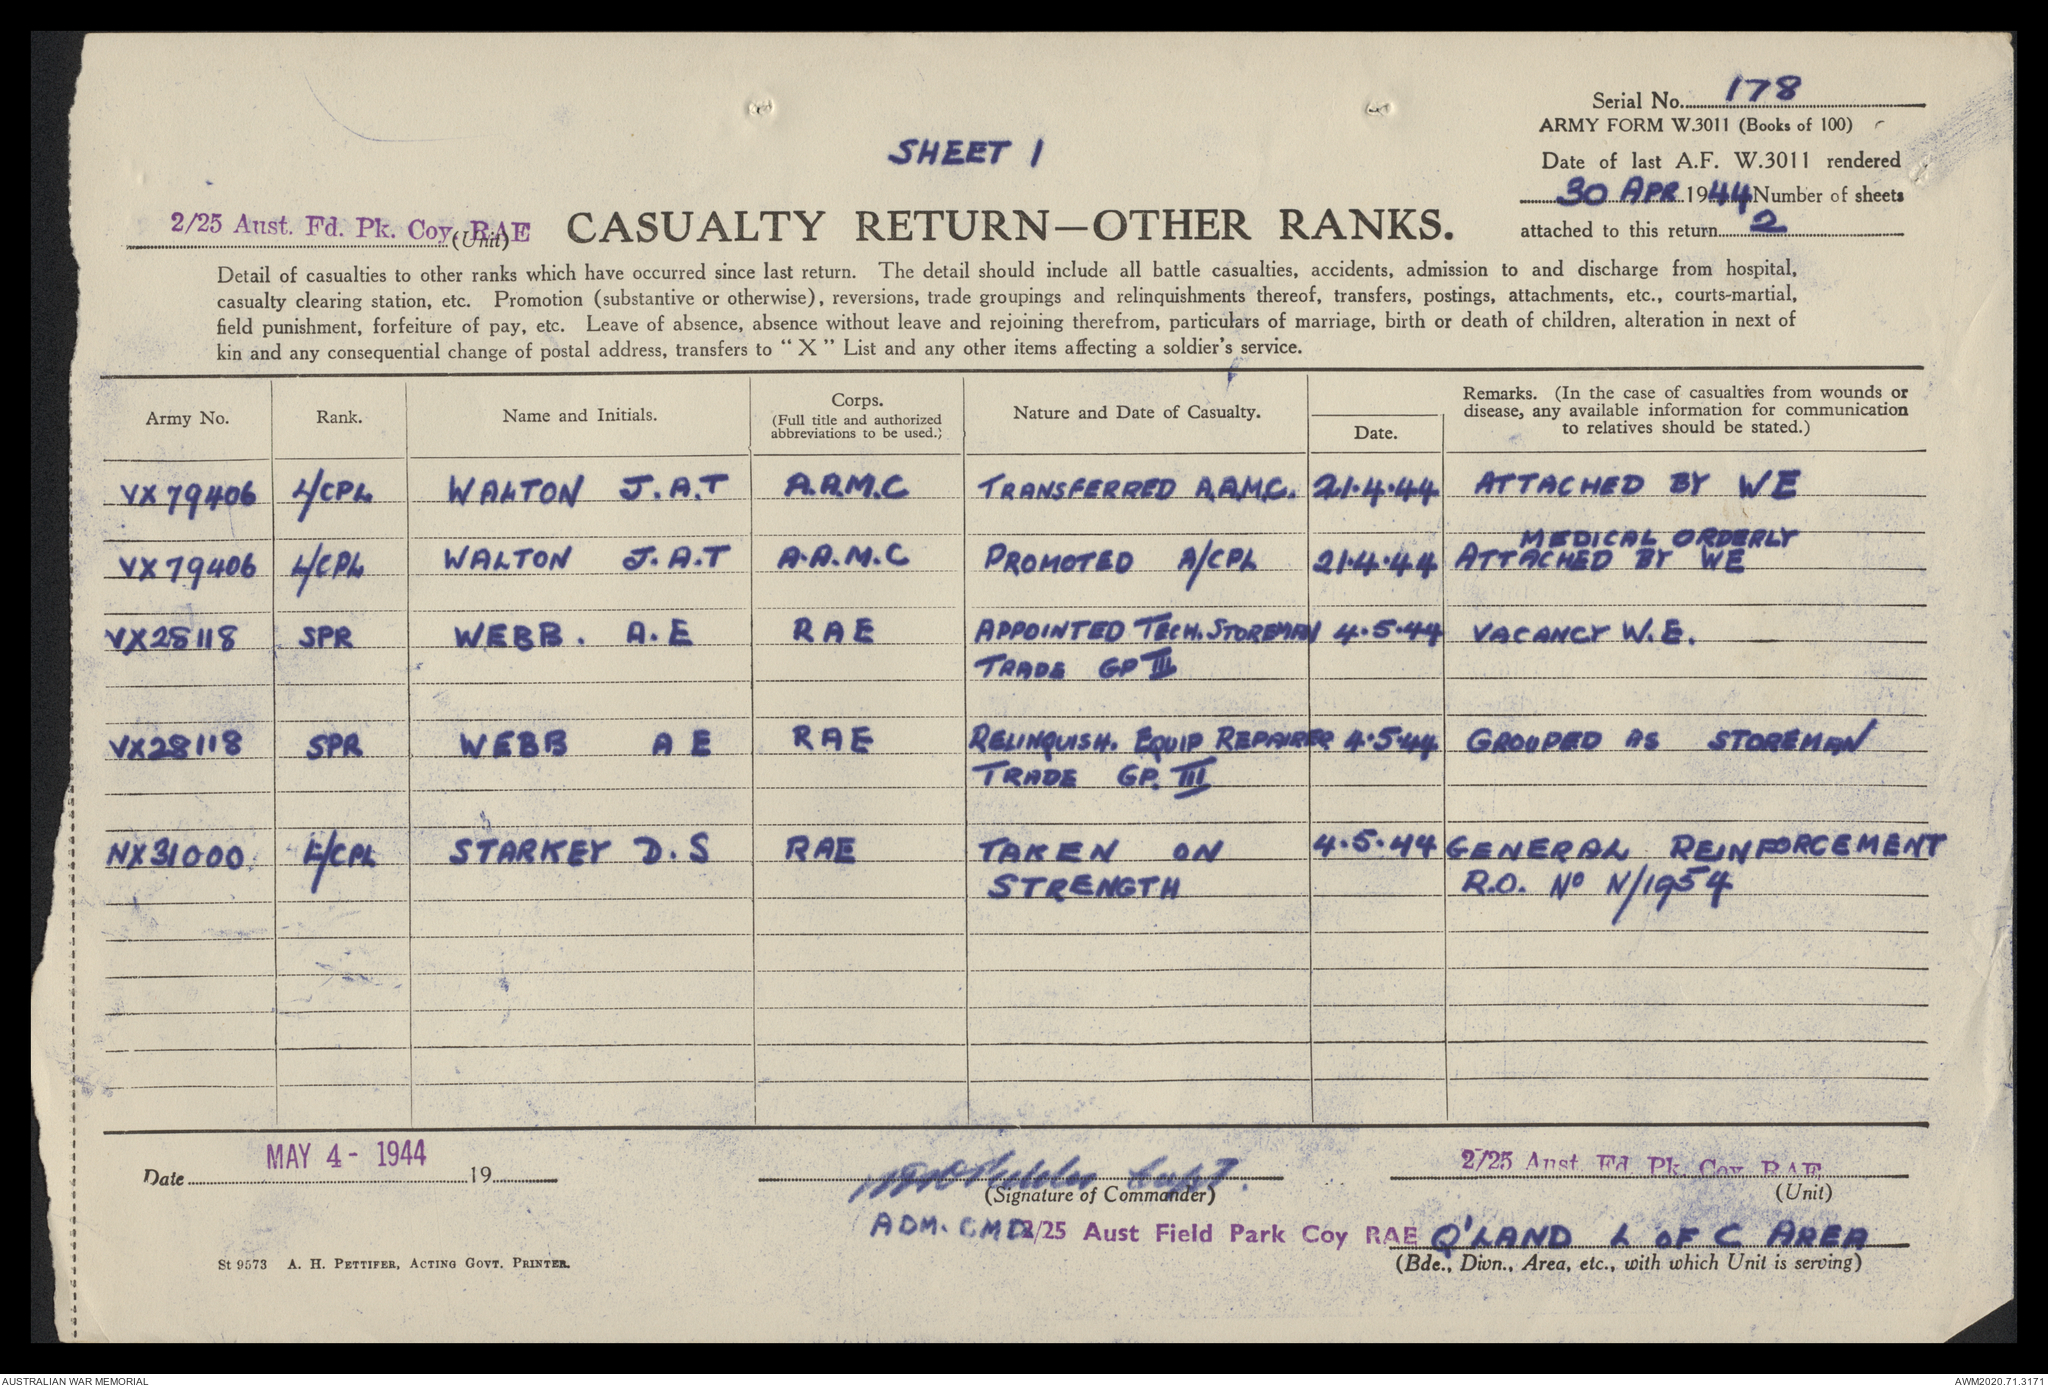 Serial No. 178
ARMY FORM W.3011 (Books of 100)
SHEET 1
Date of last A.F. W.3011 rendered
30 APR 1944 Number of sheets
attached to this return 2
2/25 Aust. Fd. Pk. Coy. RAE (Unit)
CASUALTY RETURN—OTHER RANKS.
Detail of casualties to other ranks which have occurred since last return. The detail should include all battle casualties, accidents, admission to and discharge from hospital,
casualty clearing station, etc. Promotion (substantive or otherwise), reversions, trade groupings and relinquishments thereof, transfers, postings, attachments, etc., courts-martial,
field punishment, forfeiture of pay, etc. Leave of absence, absence without leave and rejoining therefrom, particulars of marriage, birth or death of children, alteration in next of
kin and any consequential change of postal address, transfers to "X" List and any other items affecting a soldier's service.
Army No. Rank. Name and Initials. Corps. (Full title and authorized abbreviations to be used.) Nature and Date of Casualty. Date. Remarks. (In the case of casualties from wounds or disease, any available information for communication to relatives should be stated.)
VX79406 L/CPL WALTON J.A.T A.A.M.C TRANSFERRED A.A.M.C. 21.4.44 ATTACHED BY WE
MEDICAL ORDERLY
VX79406 L/CPL WALTON J.A.T A.A.M.C PROMOTED A/CPL 21.4.44 ATTACHED BY WE
VX28118 SPR WEBB. A.E RAE APPOINTED TECH. STOREMAN 4.5.44 VACANCY W.E.
TRADE GP III
VX28118 SPR WEBB A E RAE RELINQUISH. EQUIP REPAIRER 4.5.44 GROUPED AS STOREMAN
TRADE GP. III
NX31000 L/CPL STARKEY D.S RAE TAKEN ON 4.5.44 GENERAL REINFORCEMENT
STRENGTH R.O. No N/1954
Date MAY 4 - 1944 19
Capt.
(Signature of Commander)
2/25 Aust. Fd. Pk. Coy. RAE
(Unit)
ADM. CMD 2/25 Aust Field Park Coy RAE
Q'LAND L OF C AREA
(Bde., Divn., Area, etc., with which Unit is serving)
St 9573 A. H. PETTIFER, ACTING GOVT. PRINTER.
AUSTRALIAN WAR MEMORIAL
AWM2020.71.3171